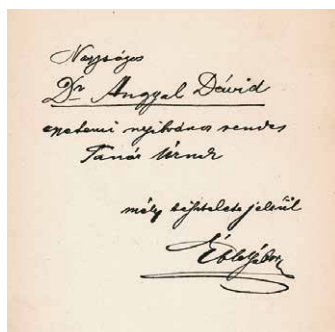 Nagyságos
Dr Angyal Dávid
egyetemi nyilvános rendes
Tanár Úrnak
mély tisztelete jeléül
Éble Gábor